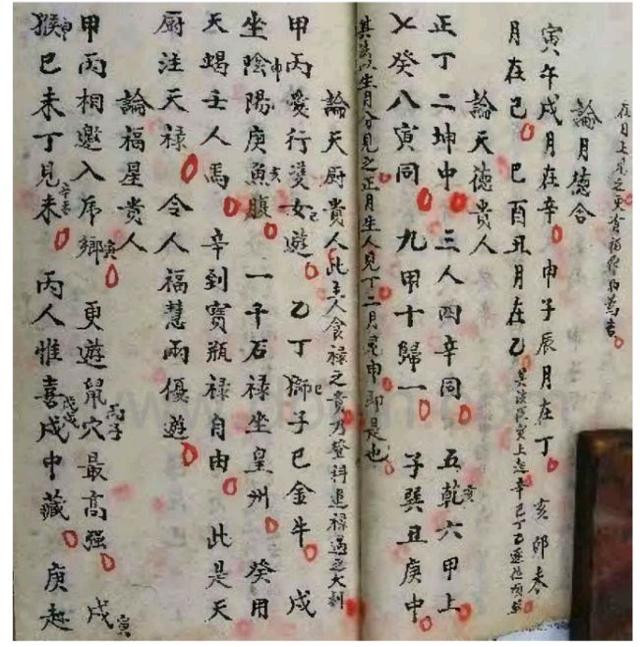 在月上見之更有福祭
論月德合
寅午戌月在辛 申子辰月在丁 亥卯未
月在己 巳酉丑月在乙
論天德貴人
正丁二坤中 三人四辛同 五乾亥六甲上
七癸八寅同 九甲十歸一 子巽丑庚中
其法以生月合見之正月生人見丁二月見申即是也
論天厨貴人此主人食祿之貴乃登科進祿遇之大利
甲丙愛行雙女遊 乙丁獅子巳金牛 戊
坐陰陽申庚魚腹亥 一千石祿坐皇州 癸用
天蝎壬人馬 辛到寶瓶祿自由 此是天
厨注天祿 令人福慧兩優遊
論福星貴人
甲丙相邀入虎鄉寅 更遊鼠穴最高強 戊
猴申巳未丁見未 丙人惟喜戌中藏 庚趁